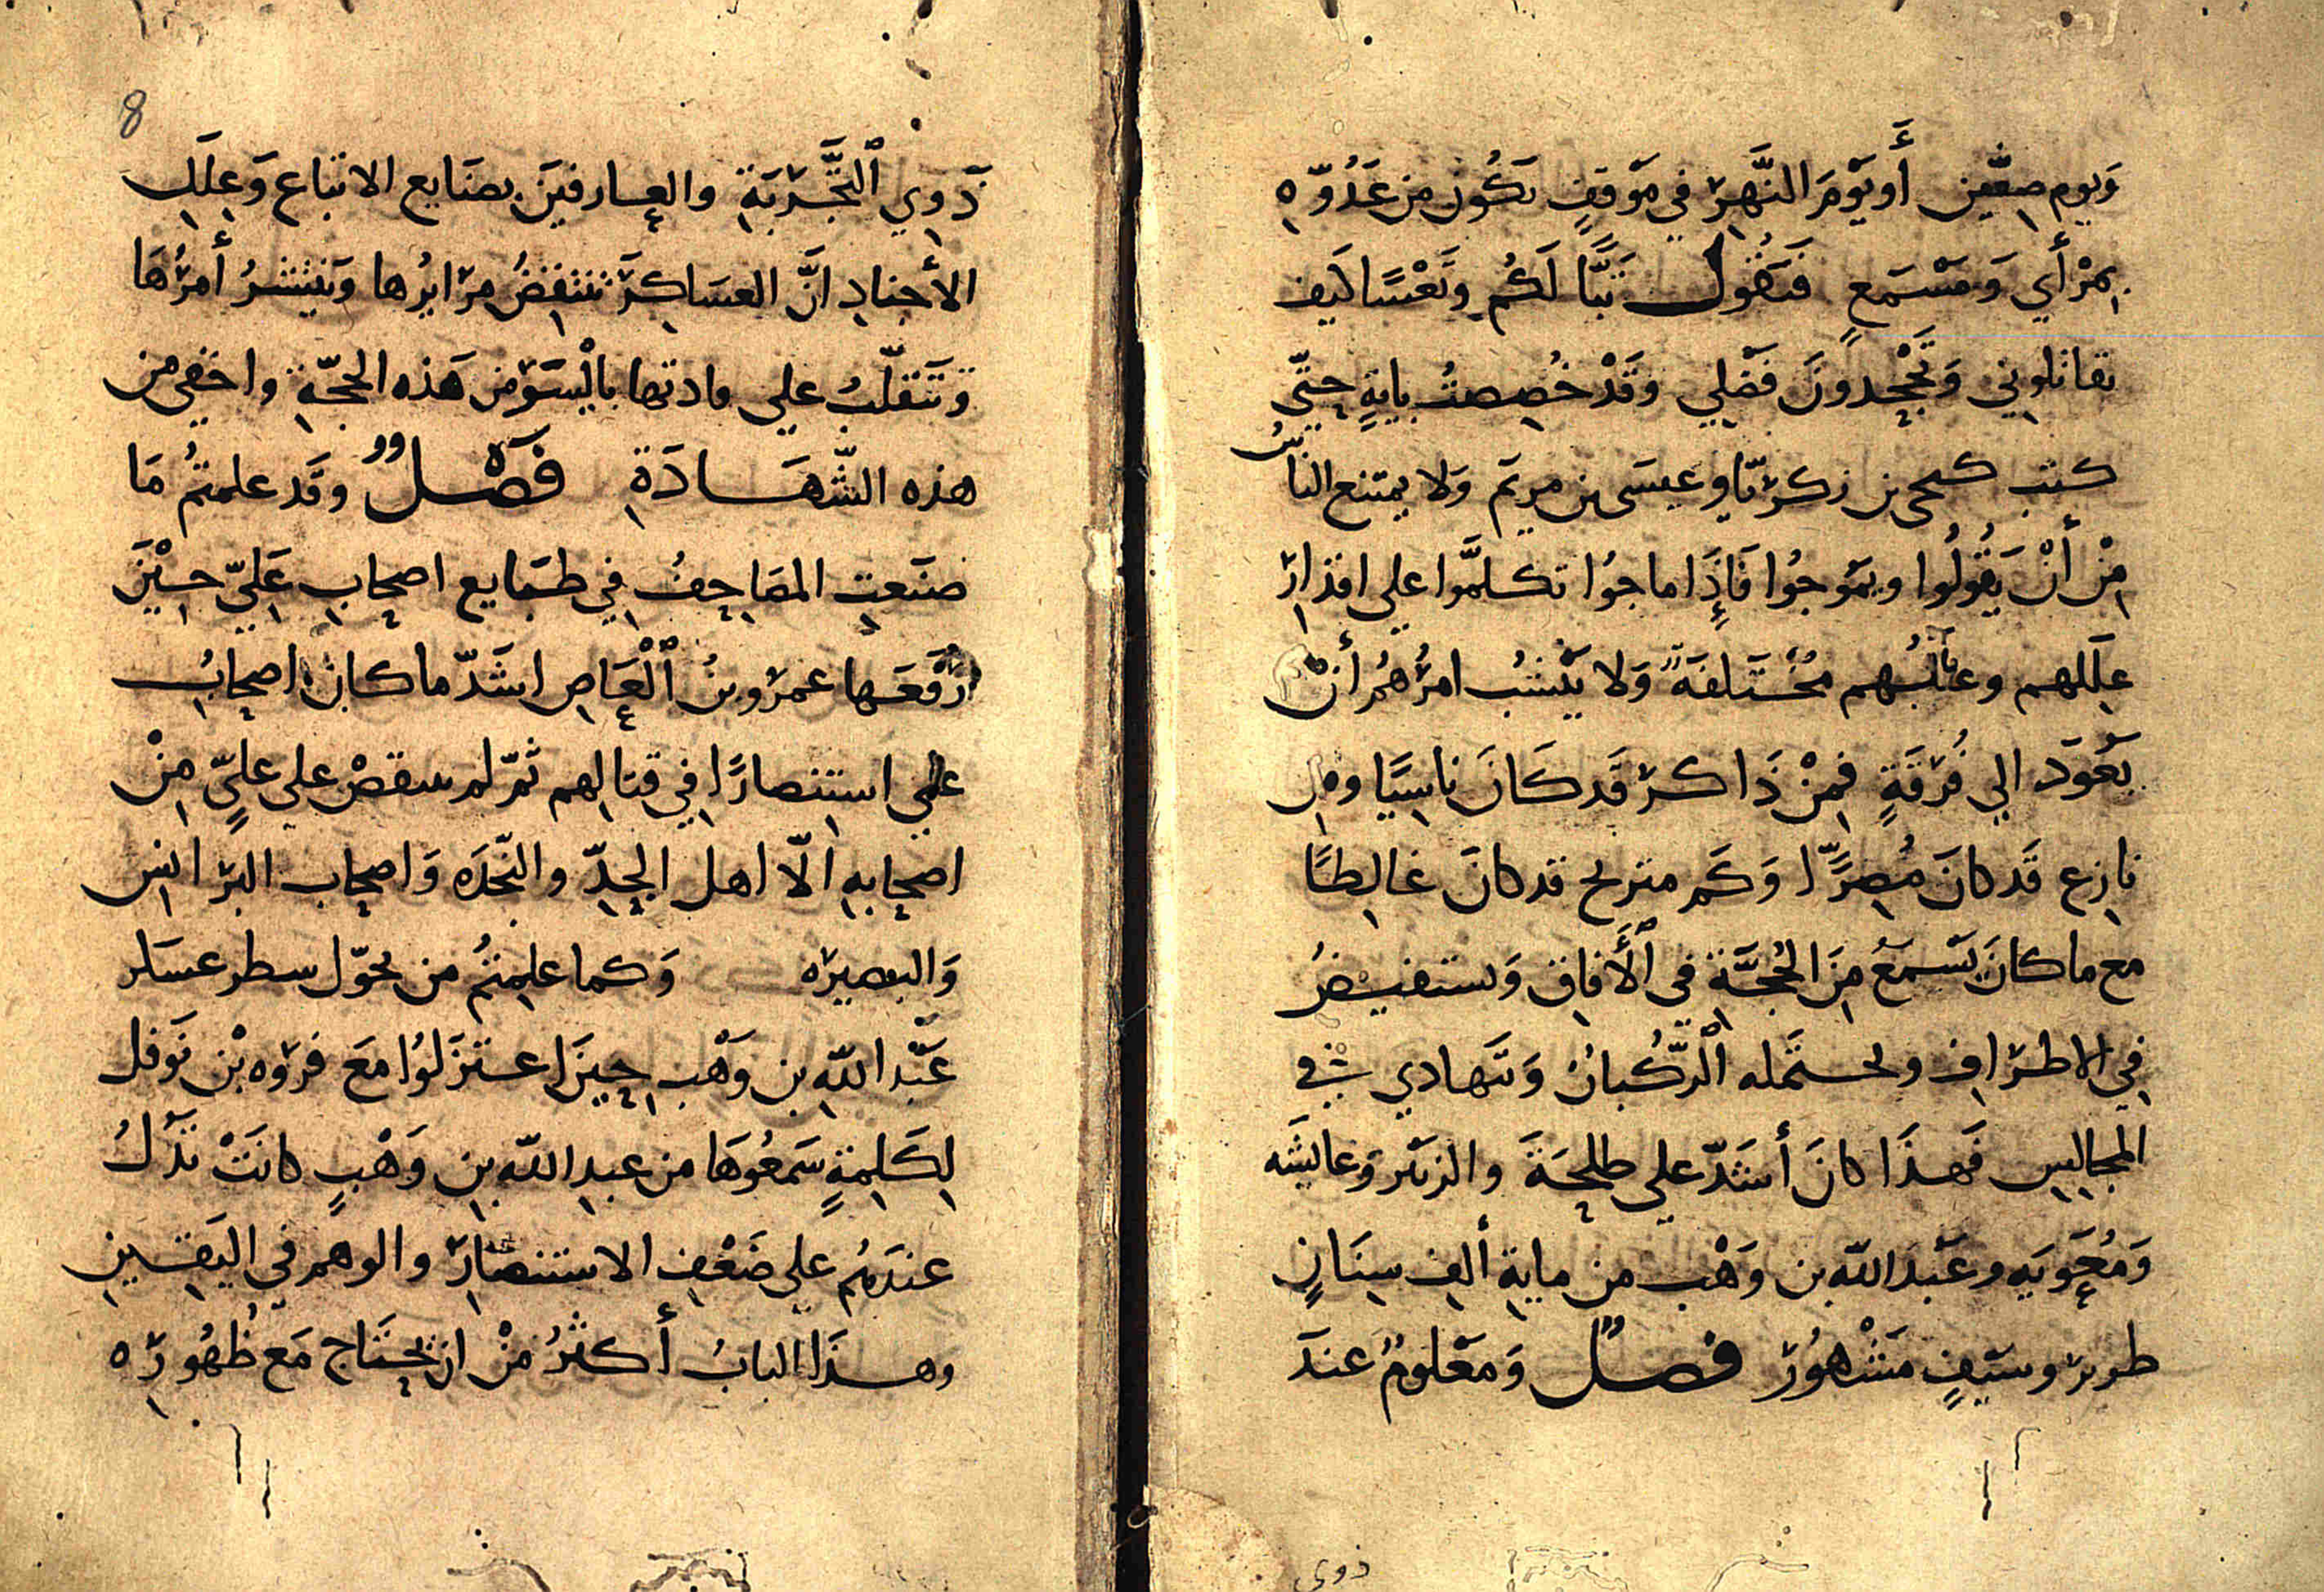 وَيوم صِفّين أَو يَوْمَ النَّهِرْ في مَوْقفٍ تكُون من عَدُوّه
بِمرْأي وَمَسْمَعٍ فتَقُول تبًّا لَكُم وتَعْسًا كيف
تقاتلوني وَتَجْحدونَ فَضْلِي وقَدْ خُصِصتُ بايةٍ حتّي
كنت كيحى بن زكريّا وعيسَى بن مريَم وَلا يمتنع الناسُ
مِنْ أنْ يَقُولُوا ويمَوجُوا فَإِذَا ماجُوا تكلمَّوا علي اقدارِ
عِلَلهم وعللُهم مُخْتَلفَةً وَلا يَنْشبُ امرُهُم أنْ
يَعُودَ الي فُرْقَةٍ فمِنْ ذَاكر قَد كَانَ ناسِيًا ومن
نازِع قَد كانَ مُصِرًّا وَكَم مترنح قد كانَ غالِطًا
مع ما كانَ يَسْمعُ مِنَ الحُجَّةِ في ٱلأَفاق وَيستفيضُ
في الاطرَافِ ولحتمله ٱلرُّكبانُ وَتَهادي في
المجالِسِ فَهذَا كانَ أشَدّ علي طلحَةَ والزبَير وَعايشَه
وَمُعَوِيَه وعَبْدَ اللّه بن وَهْب من مايةِ ألفِ سِنَانٍ
طرير وسَيفٍ مَشْهُور فصلٌ وَمعْلومٌ عندَ
ذوى
8
ذَوِي ٱلتَّجْرَبَةِ والعارفينَ بصنَايع الاتباع وَعِلَلِ
الأجنادِ انَّ العسَاكِرَ تنتقِضُ مرَايرُها وَينتشرُ أمرُهَا
وَتَنقلّبُ علي مادتها بأيْسَرَ من هَذه الحجّةِ واخفي من
هذه الشّهَادَةِ فَصْلٌ وقَد علمتمُ مَا
صَنَعتِ المصَاحِفُ في طبَايع اصحابِ عَليّ حِيْنَ
رَفَعَها عمرو بنُ ٱلْعَاصِ اشَدّ ما كان اصحابُ
علي استنصارًا في قتالِهم ثمّ لم ينقضْ علي عليٍّ مِنْ
اصحابهِ الّا اهل الجِدِّ والنّجدَه وَاصحاب البرَانس
وَالبصيرَه وَكما علِمتمُ من تحوّل سطر عسَكر
عَبْد اللّهِ بن وَهْبِ حِينَ اعتزَلُوا مَعَ فرْوه بْن نَوفل
لِكَلِمةٍ سَمعُوهَا من عبدِ اللّه بنِ وَهْبٍ كانَتْ تَدُلُّ
عندَهُم علي ضَعْفِ الاستنصَارِ والوهم في اليَقينِ
وهذَا البابُ أكثَرُ مِنْ ان يحتَاج مَع ظُهُورِه